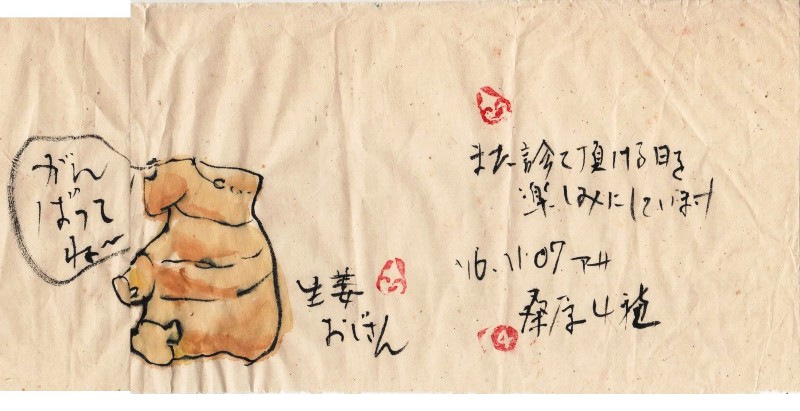 がん
ばって
ねー
生姜
おじさん
また診て頂ける日を
楽しみにしています
'16.11.07 アサ
桑原
4